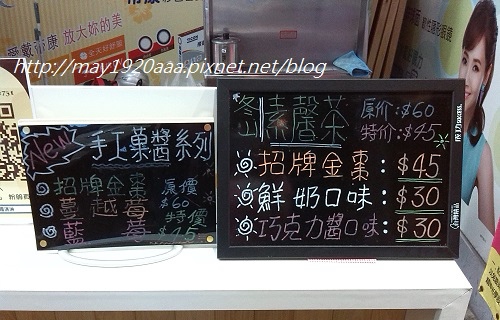 愛戴帝康 放大妳的美
http://may1920aaa.pixnet.net/blog
New
手工菓醬系列
招牌金棗 原價
蔓越莓 $60
藍莓 特價
$45
冬山素馨茶
原价:$60
特价:$45
招牌金棗:$45
鮮奶口味:$30
巧克力醬口味:$30